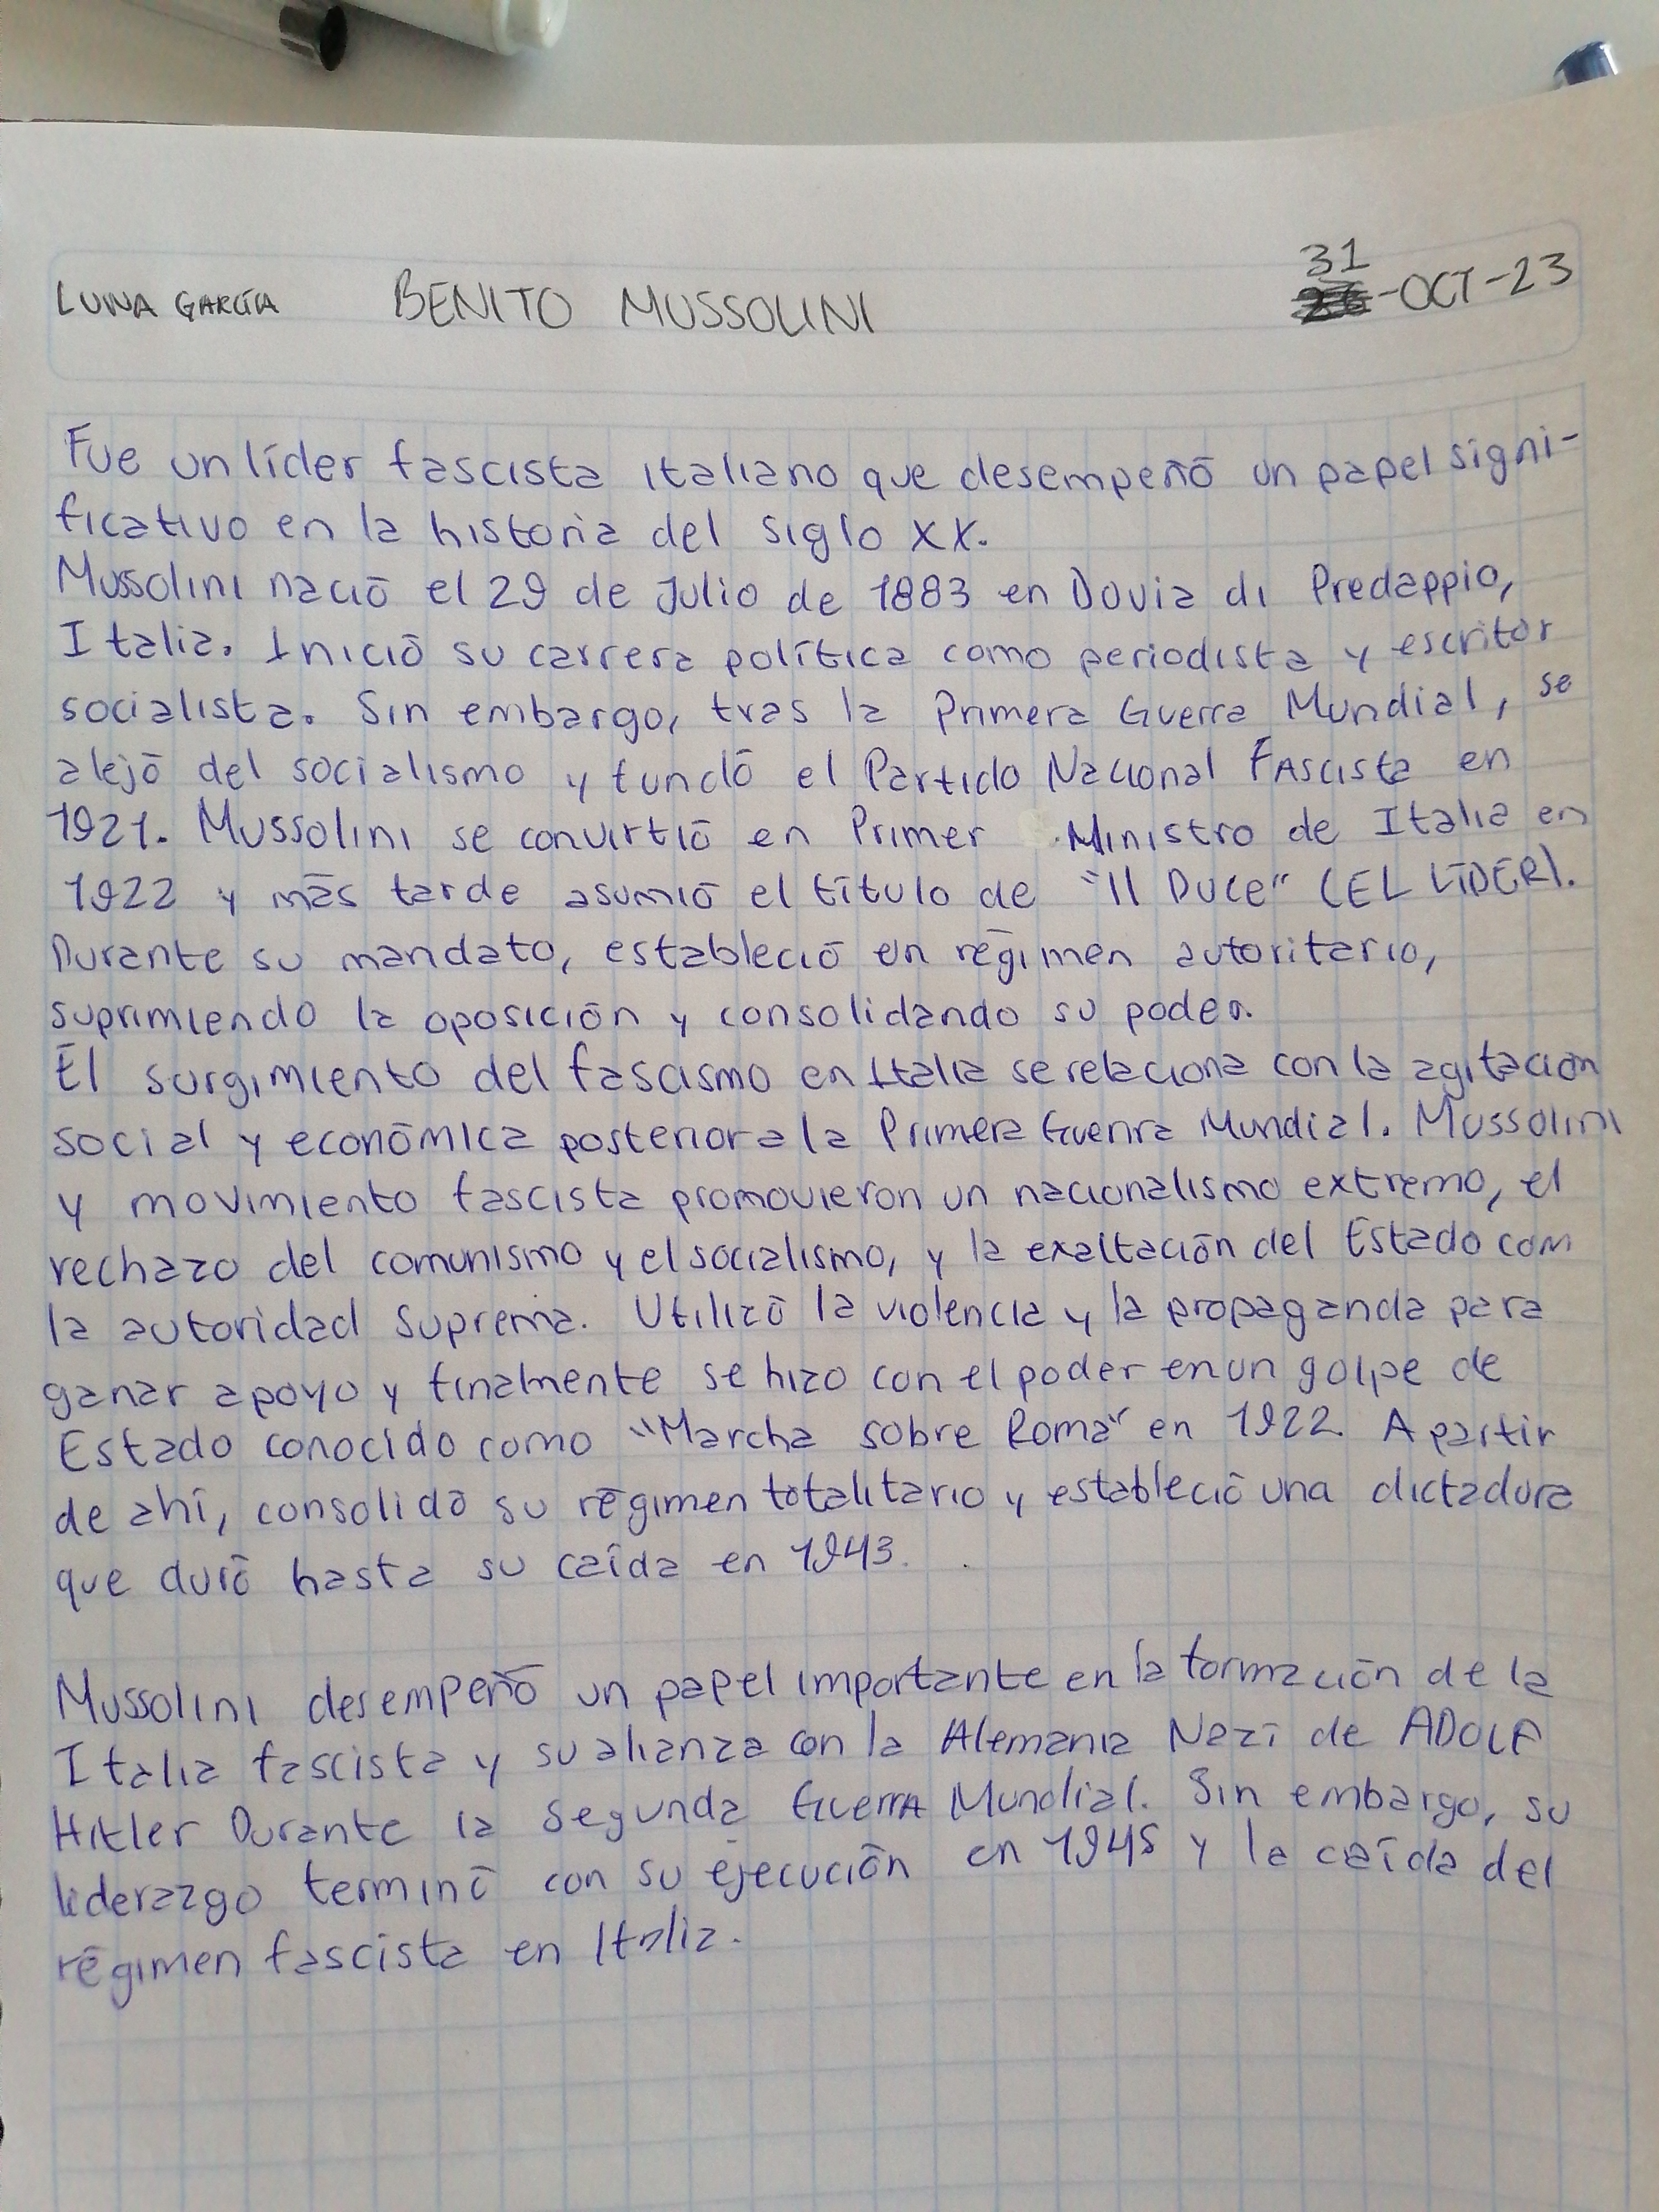 LUNA GARCÍA BENITO MUSSOLINI 31-OCT-23
Fue un líder fascista italiano que desempeñó un papel signi-
ficativo en la historia del siglo XX.
Mussolini nació el 29 de Julio de 1883 en Dovia di Predappio,
Italia. Inició su carrera política como periodista y escritor
socialista. Sin embargo, tras la Primera Guerra Mundial, se
alejó del socialismo y fundó el Partido Nacional FAscista en
1921. Mussolini se convirtió en Primer Ministro de Italia en
1922 y más tarde asumió el título de "Il Duce" (EL LÍDER).
Durante su mandato, estableció un régimen autoritario,
suprimiendo la oposición y consolidando su poder.
El surgimiento del fascismo en Italia se relaciona con la agitación
social y económica posterior a la Primera Guerra Mundial. Mussolini
y movimiento fascista promovieron un nacionalismo extremo, el
rechazo del comunismo y el socialismo, y la exaltación del Estado com
la autoridad Suprema. Utilizó la violencia y la propaganda para
ganar apoyo y finalmente se hizo con el poder en un golpe de
Estado conocido como "Marcha sobre Roma" en 1922. A partir
de ahí, consolidó su régimen totalitario y estableció una dictadura
que duró hasta su caída en 1943.
Mussolini desempeñó un papel importante en la formación de la
Italia fascista y su alianza con la Alemania Nazi de ADOLF
Hitler Durante la Segunda GuerrA Mundial. Sin embargo, su
liderazgo terminó con su ejecución en 1945 y la caída del
régimen fascista en Italia.